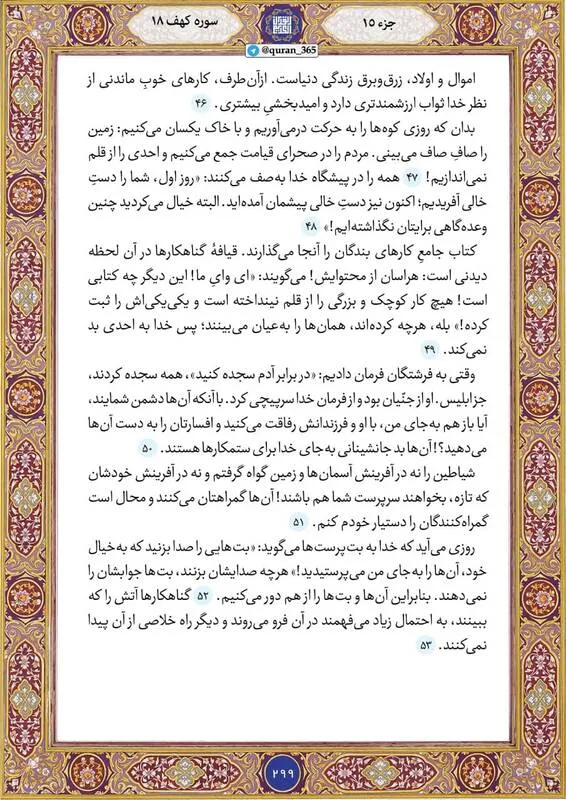 جزء ۱۵
سوره کهف ۱۸
@quran_365
اموال و اولاد، زرق‌وبرق زندگی دنیاست. ازآن‌طرف، کارهای خوبِ ماندنی از
نظر خدا ثواب ارزشمندتری دارد و امیدبخشیِ بیشتری. ۴۶
بدان که روزی کوه‌ها را به حرکت درمی‌آوریم و با خاک یکسان می‌کنیم: زمین
را صافِ صاف می‌بینی. مردم را در صحرای قیامت جمع می‌کنیم و احدی را از قلم
نمی‌اندازیم! ۴۷ همه را در پیشگاه خدا به‌صف می‌کنند: «روز اول، شما را دستِ
خالی آفریدیم؛ اکنون نیز دستِ خالی پیشمان آمده‌اید. البته خیال می‌کردید چنین
وعده‌گاهی برایتان نگذاشته‌ایم!» ۴۸
کتاب جامعِ کارهای بندگان را آنجا می‌گذارند. قیافهٔ گناهکارها در آن لحظه
دیدنی است: هراسان از محتوایش! می‌گویند: «ای وایِ ما! این دیگر چه کتابی
است! هیچ کار کوچک و بزرگی را از قلم نینداخته است و یکی‌یکی‌اش را ثبت
کرده!» بله، هرچه کرده‌اند، همان‌ها را به‌عیان می‌بینند؛ پس خدا به احدی بد
نمی‌کند. ۴۹
وقتی به فرشتگان فرمان دادیم: «در برابر آدم سجده کنید»، همه سجده کردند،
جز ابلیس. او از جنّیان بود و از فرمان خدا سرپیچی کرد. با آنکه آن‌ها دشمن شمایند،
آیا باز هم به‌جای من، با او و فرزندانش رفاقت می‌کنید و افسارتان را به دست آن‌ها
می‌دهید؟! آن‌ها بد جانشینانی به‌جای خدا برای ستمکارها هستند. ۵۰
شیاطین را نه در آفرینش آسمان‌ها و زمین گواه گرفتم و نه در آفرینش خودشان
که تازه، بخواهند سرپرست شما هم باشند! آن‌ها گمراهتان می‌کنند و محال است
گمراه‌کنندگان را دستیار خودم کنم. ۵۱
روزی می‌آید که خدا به بت‌پرست‌ها می‌گوید: «بت‌هایی را صدا بزنید که به‌خیال
خود، آن‌ها را به‌جای من می‌پرستیدید!» هرچه صدایشان بزنند، بت‌ها جوابشان را
نمی‌دهند. بنابراین آن‌ها و بت‌ها را از هم دور می‌کنیم. ۵۲ گناهکارها آتش را که
ببینند، به احتمال زیاد می‌فهمند در آن فرو می‌روند و دیگر راه خلاصی از آن پیدا
نمی‌کنند. ۵۳
۲۹۹